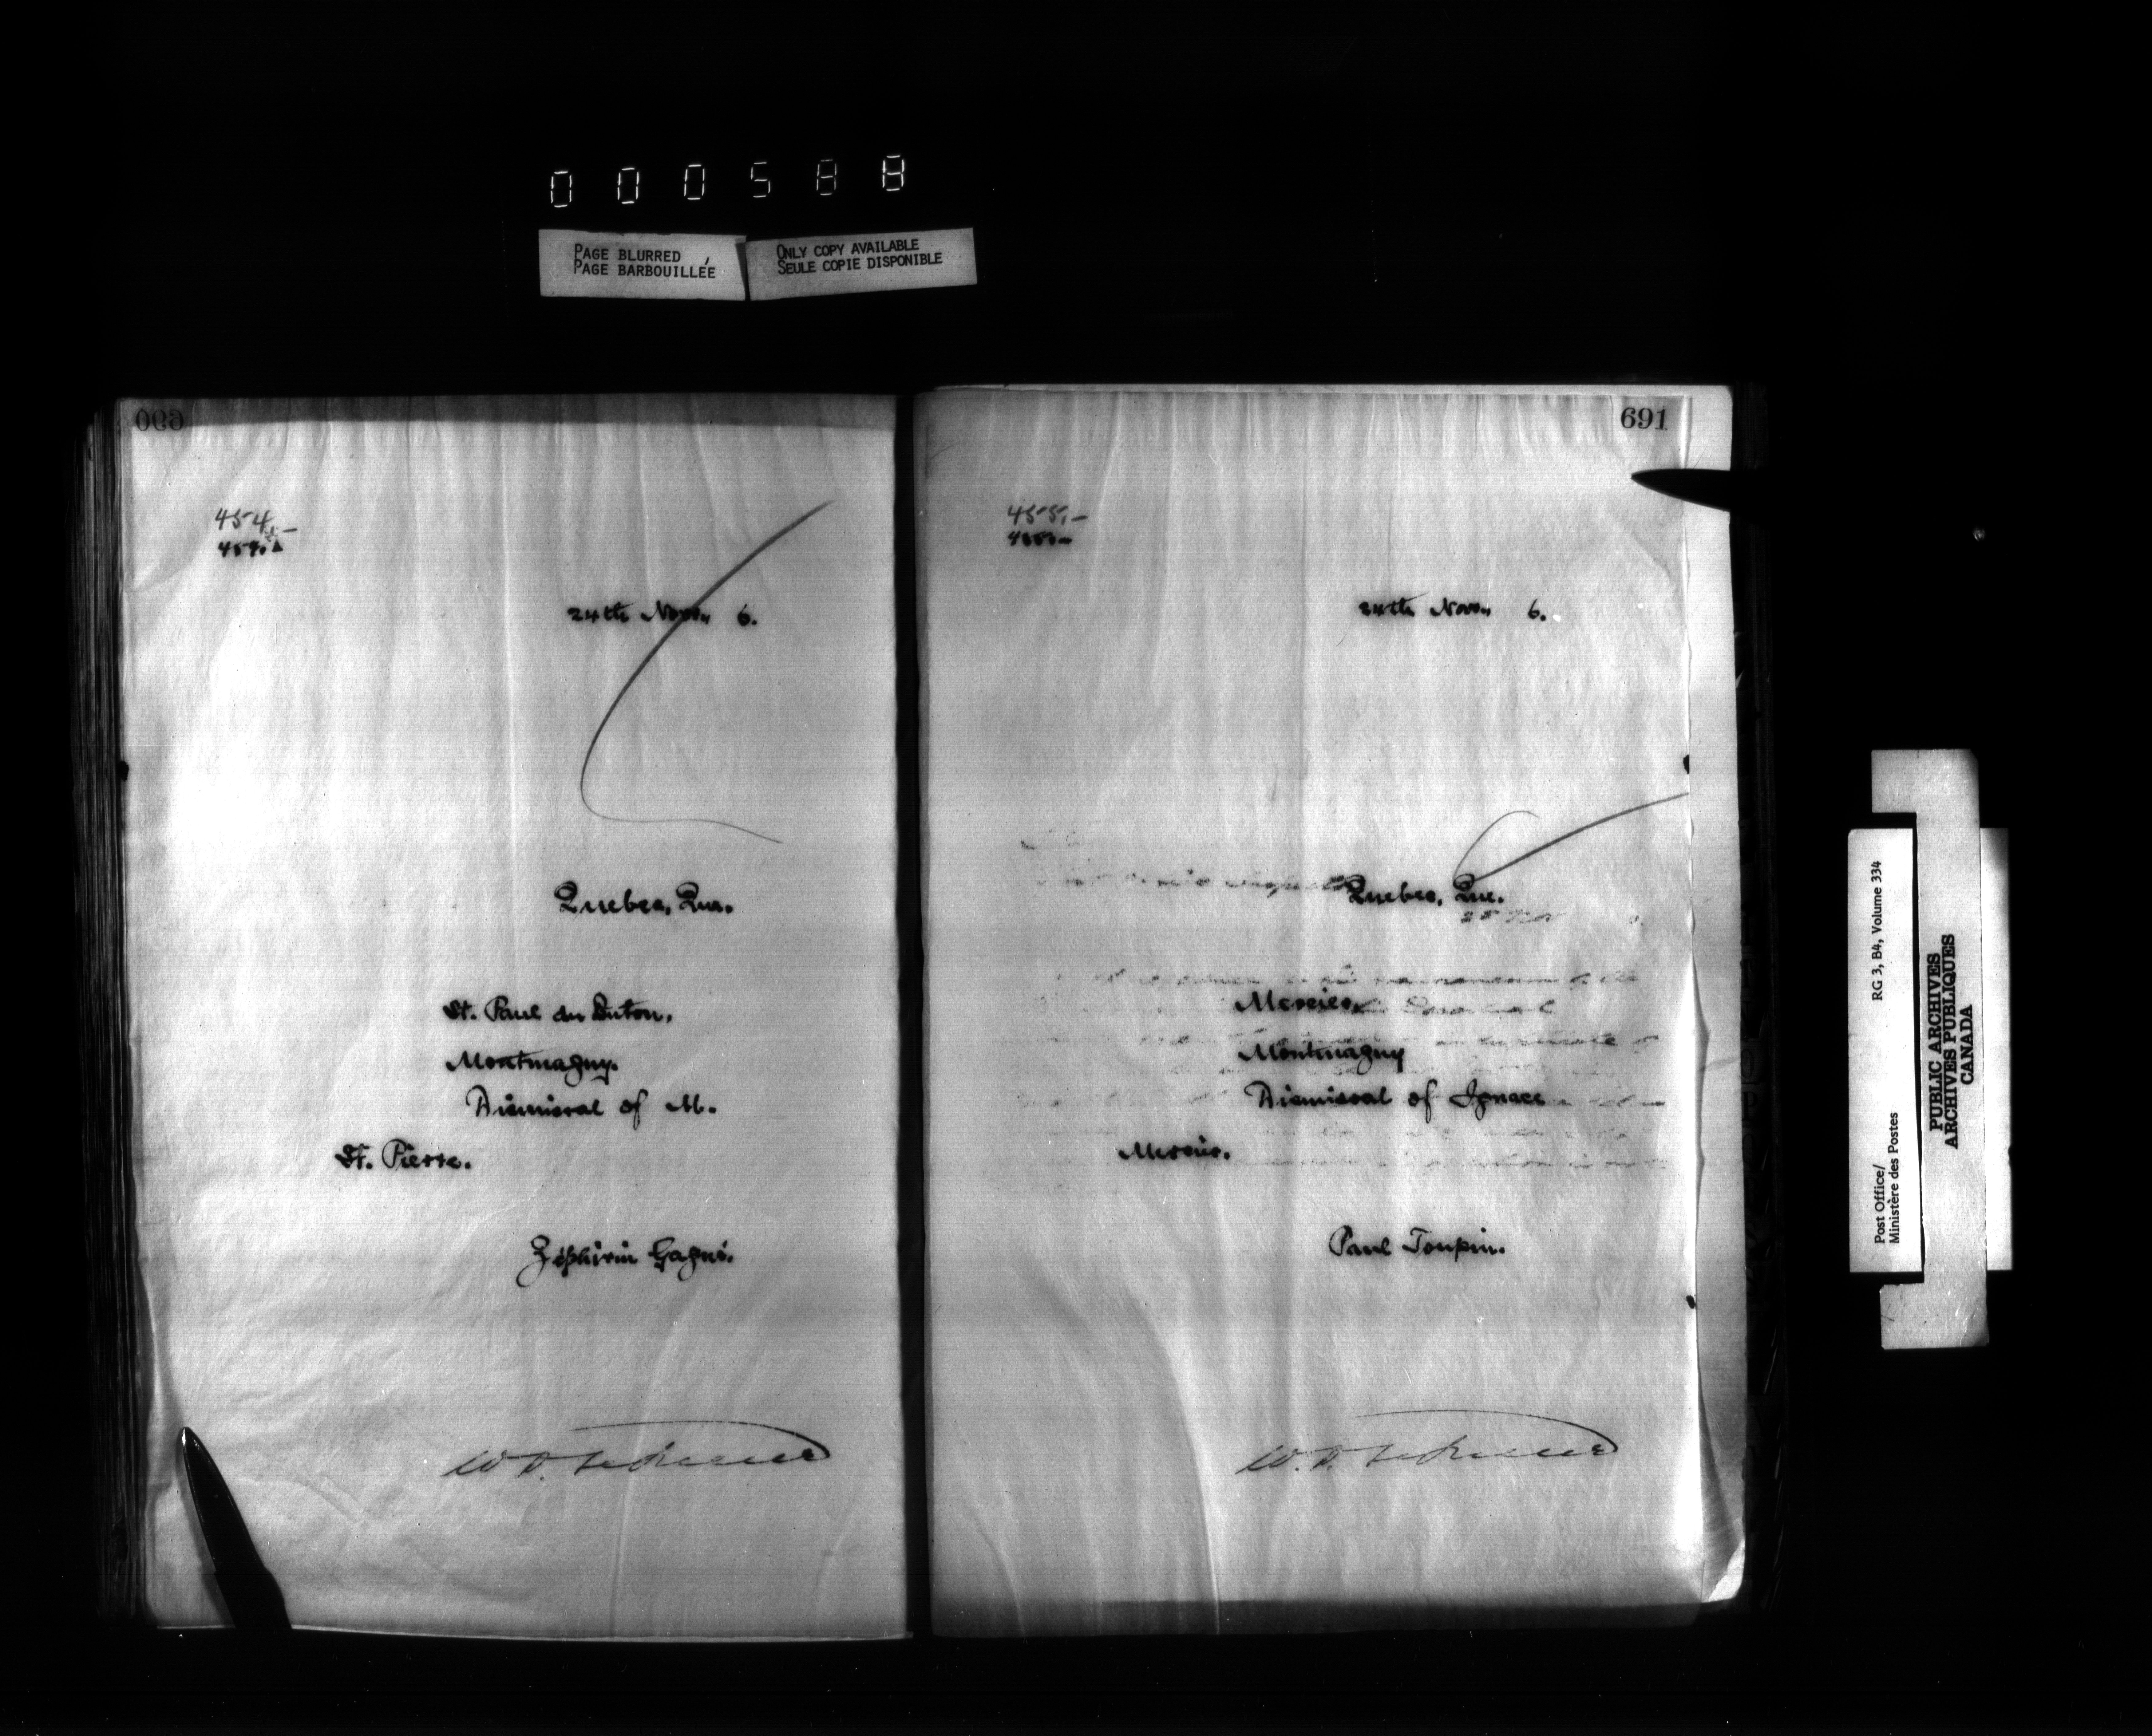 000588
PAGE BLURRED
PAGE BARBOUILLÉE
ONLY COPY AVAILABLE
SEULE COPIE DISPONIBLE
690
454.-
454.
24th Nov. 6.
Quebec, Que.
St. Paul du Buton,
Montmagny.
Dismissal of M.
St. Pierre.
Zéphirin Gagné.
691
455.-
455.-
24th Nov. 6.
Quebec, Que.
Mercier,
Montmagny
Dismissal of Ignace
Mercier.
Paul Toupin.
Post Office/
Ministère des Postes
RG 3, B4, Volume 334
PUBLIC ARCHIVES
ARCHIVES PUBLIQUES
CANADA